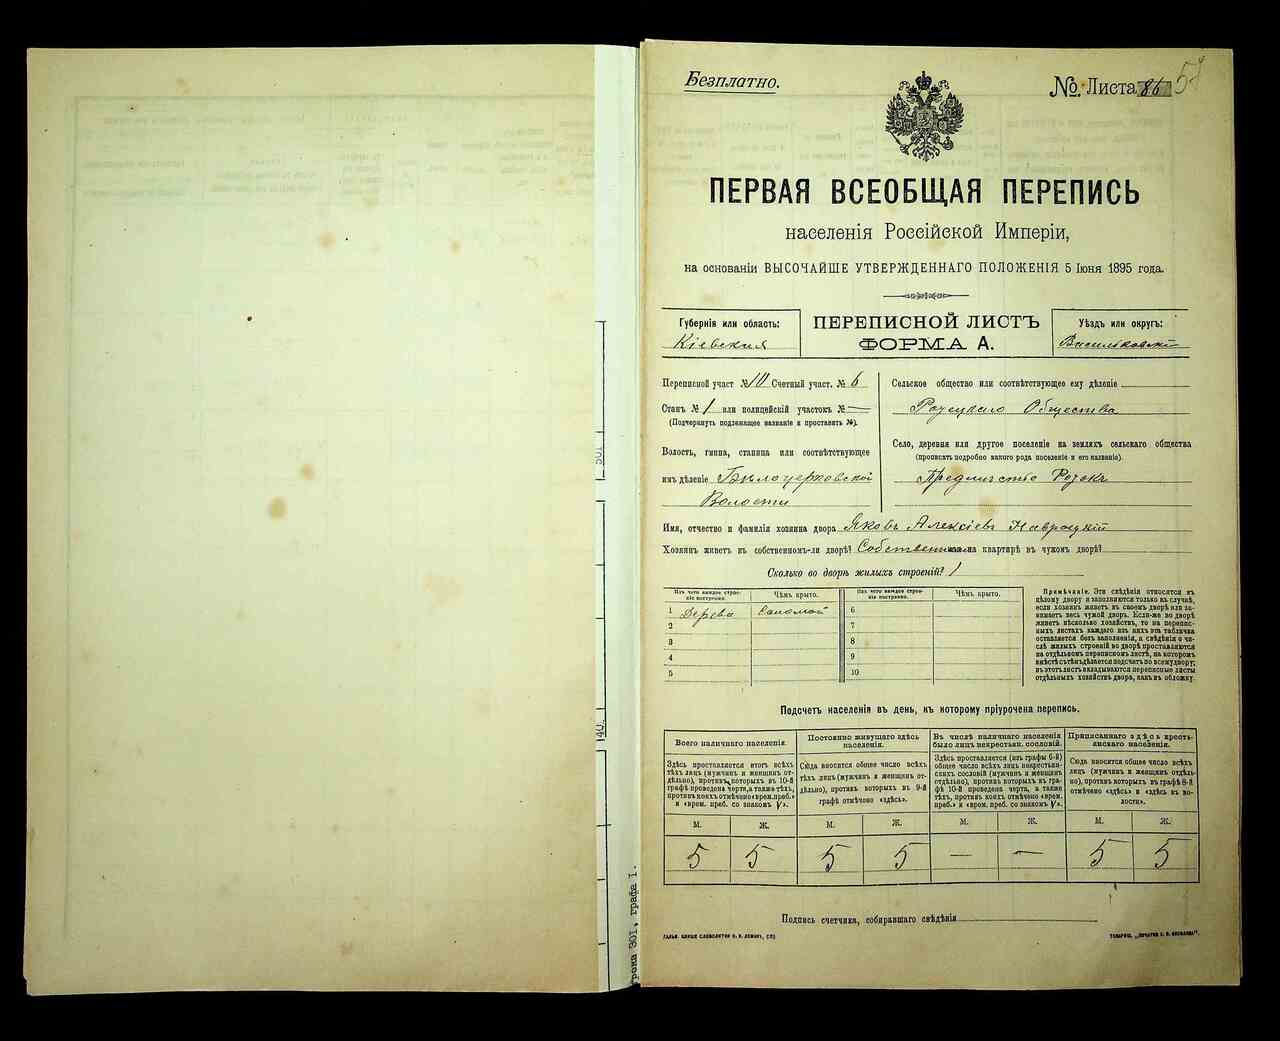 Безплатно.
№ Листа 86 57
ПЕРВАЯ ВСЕОБЩАЯ ПЕРЕПИСЬ
населенія Россійской Имперіи,
на основаніи ВЫСОЧАЙШЕ УТВЕРЖДЕННАГО ПОЛОЖЕНІЯ 5 Іюня 1895 года.
Губернія или область:
Кіевская
ПЕРЕПИСНОЙ ЛИСТЪ
ФОРМА А.
Уѣздъ или округъ:
Васильковскій
Переписной участ. № 10 Счетный участ. № 6
Станъ № 1 или полицейскій участокъ № —
(Подчеркнуть подлежащее названіе и проставить №).
Волость, гмина, станица или соотвѣтствующее
имъ дѣленіе Бѣлоцерковской
Волости
Сельское общество или соотвѣтствующее ему дѣленіе
Ротецкаго Общества
Село, деревня или другое поселеніе на земляхъ сельскаго общества
(прописать подробно какого рода поселеніе и его названіе).
Предмѣстье Ротокъ
Имя, отчество и фамилія хозяина двора Яковъ Алексѣевъ Навроцкій
Хозяинъ живетъ въ собственномъ-ли дворѣ? Собственномъ на квартирѣ въ чужомъ дворѣ?
Сколько во дворѣ жилыхъ строеній? 1
Изъ чего каждое строе-
ніе построено.
Чѣмъ крыто.
Изъ чего каждое строе-
ніе построено.
Чѣмъ крыто.
1 Дерева Соломой
2
3
4
5
6
7
8
9
10
Примѣчаніе. Эти свѣдѣнія относятся къ
цѣлому двору и заполняются только въ случаѣ,
если хозяинъ живетъ въ своемъ дворѣ или за-
нимаетъ весь чужой дворъ. Если-же во дворѣ
живетъ нѣсколько хозяйствъ, то на перепис-
ныхъ листахъ каждаго изъ нихъ эта табличка
оставляется безъ заполненія, а свѣдѣнія о чи-
слѣ жилыхъ строеній во дворѣ проставляются
на отдѣльномъ переписномъ листѣ, на которомъ
вмѣстѣ съ тѣмъ дѣлается подсчетъ по всему двору;
въ этотъ листъ вкладываются переписные листы
отдѣльныхъ хозяйствъ двора, какъ въ обложку.
Подсчетъ населенія въ день, къ которому пріурочена перепись.
Всего наличнаго населенія.
Здѣсь проставляется итогъ всѣхъ
тѣхъ лицъ (мужчинъ и женщинъ от-
дѣльно), противъ которыхъ въ 10-й
графѣ проведена черта, а также тѣхъ,
противъ коихъ отмѣчено «врем. преб.»
и «врем. преб. со знакомъ V».
Постоянно живущаго здѣсь
населенія.
Сюда вносится общее число всѣхъ
тѣхъ лицъ (мужчинъ и женщинъ от-
дѣльно), противъ которыхъ въ 9-й
графѣ отмѣчено «здѣсь».
Въ числѣ наличнаго населенія
было лицъ некрестьян. сословій.
Здѣсь проставляется (изъ графы 6-й)
общее число всѣхъ лицъ некрестьян-
скихъ сословій (мужчинъ и женщинъ
отдѣльно), противъ которыхъ въ гра-
фѣ 10-й проведена черта, а также
тѣхъ, противъ коихъ отмѣчено «врем.
преб.» и «врем. преб. со знакомъ V».
Приписаннаго здѣсь кресть-
янскаго населенія.
Сюда вносится общее число всѣхъ
лицъ (мужчинъ и женщинъ отдѣль-
но), противъ которыхъ въ графѣ 8-й
отмѣчено «здѣсь» и «здѣсь въ во-
лости».
М. Ж. М. Ж. М. Ж. М. Ж.
5 5 5 5 — — 5 5
Подпись счетчика, собиравшаго свѣдѣнія
301, графа 1.